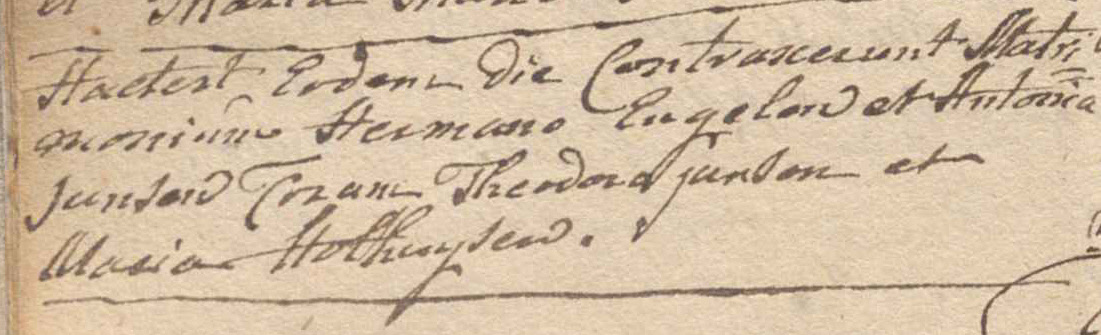 et Maria
Haetert Eodem die Contraxerunt Matri
monium Hermano Engelen et Antonia
Jansen Coram Theodora jansen et
Maria Holthuysen.